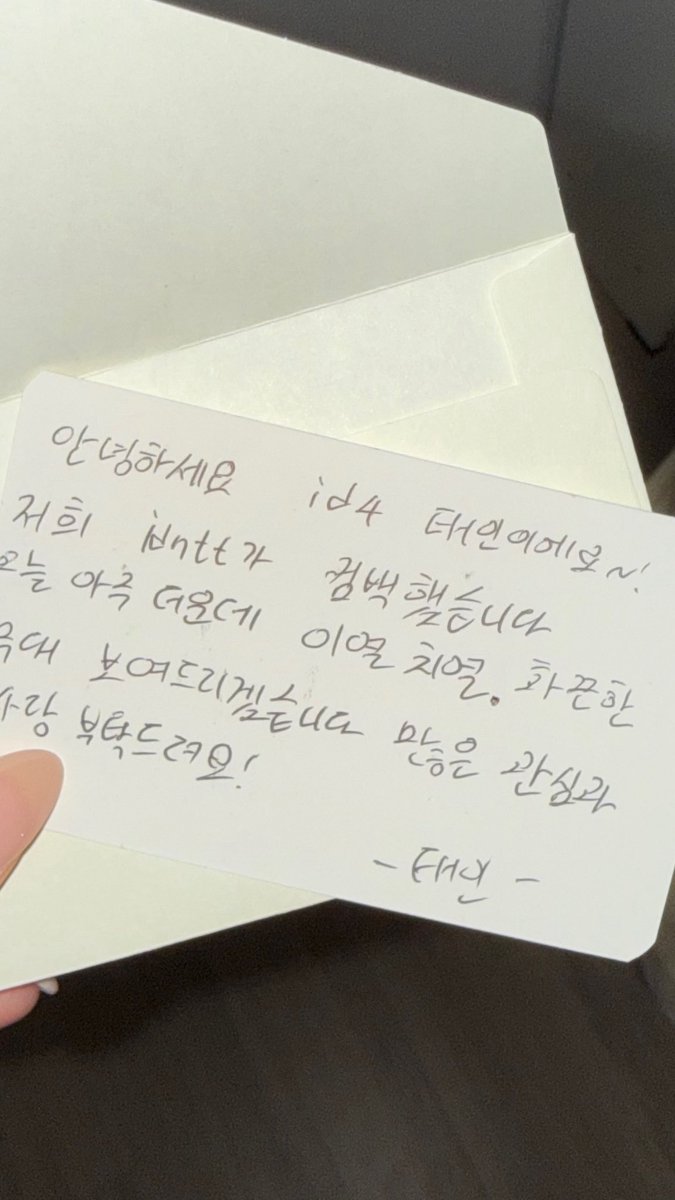 안녕하세요 id4 태인이에요~!
저희 idntt가 컴백했습니다
오늘 아주 더운데 이열치열. 화끈한
무대 보여드리겠습니다 많은 관심과
사랑 부탁드려요!
- 태인 -